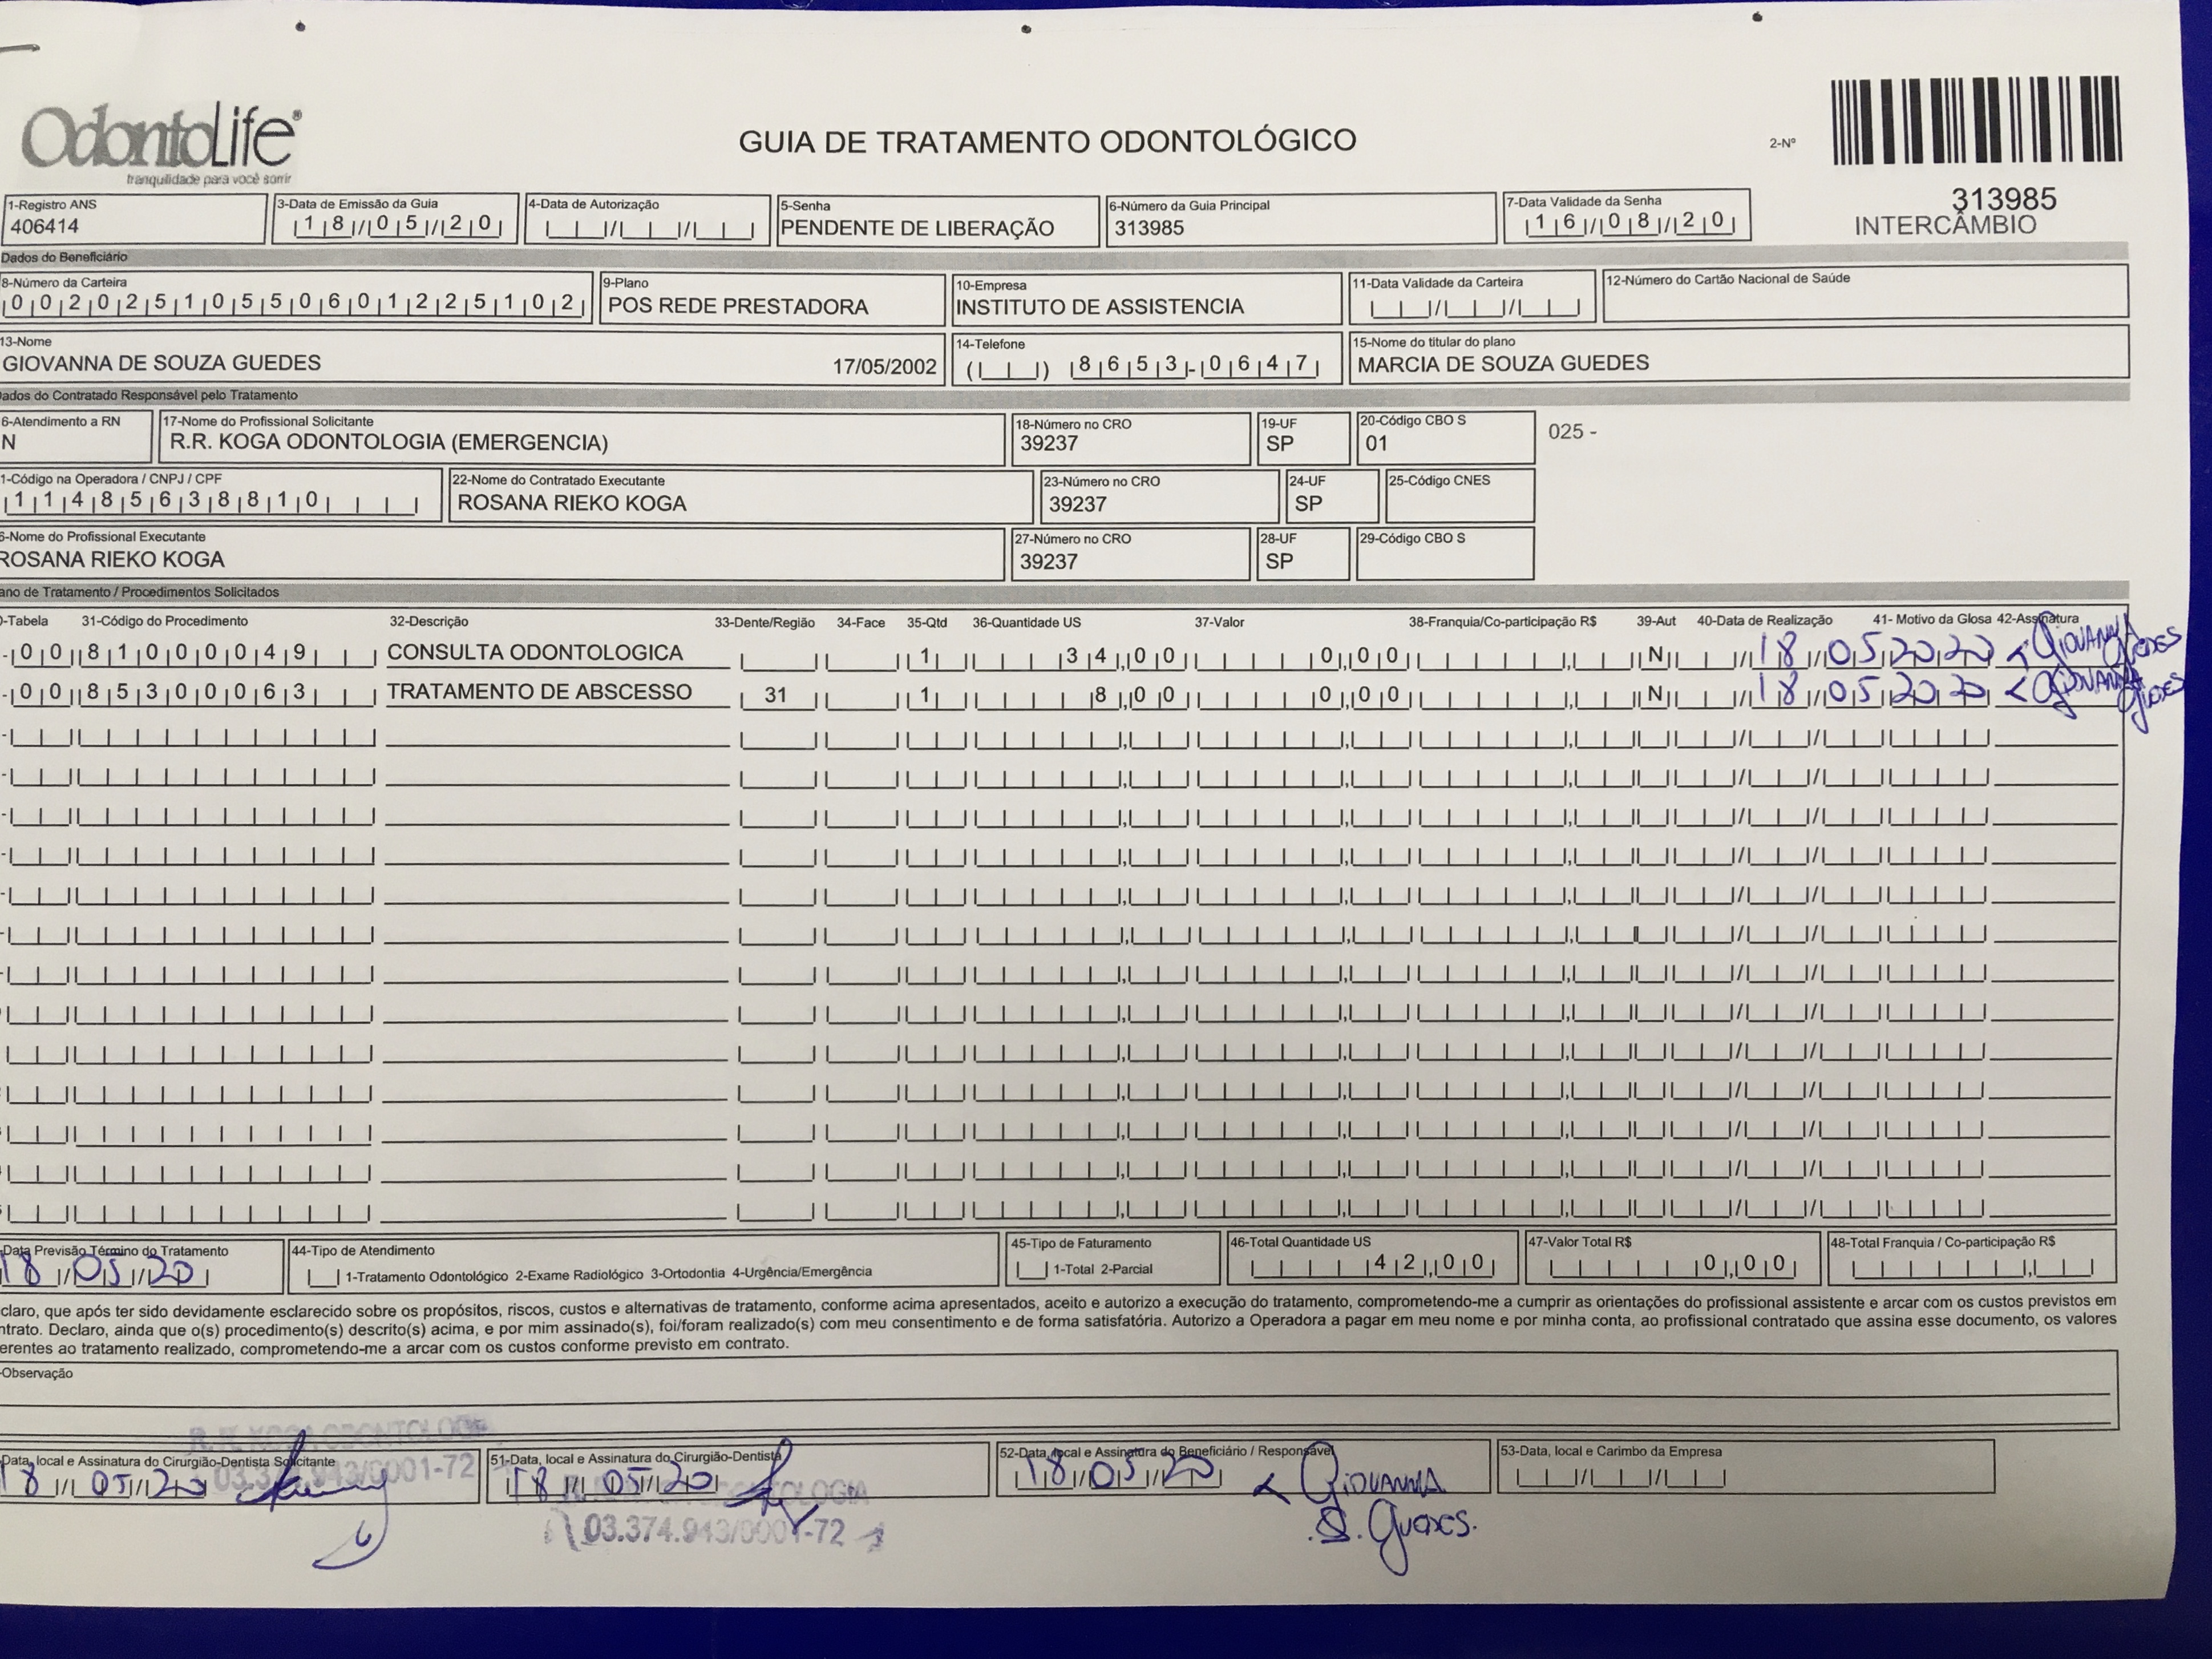 OdontoLife®
tranquilidade para você sorrir
GUIA DE TRATAMENTO ODONTOLÓGICO
2-Nº
313985
INTERCÂMBIO
1-Registro ANS 3-Data de Emissão da Guia 4-Data de Autorização 5-Senha 6-Número da Guia Principal 7-Data Validade da Senha
406414 18/05/20 PENDENTE DE LIBERAÇÃO 313985 16/08/20
Dados do Beneficiário
8-Número da Carteira 9-Plano 10-Empresa 11-Data Validade da Carteira 12-Número do Cartão Nacional de Saúde
00202510550601225102 POS REDE PRESTADORA INSTITUTO DE ASSISTENCIA
13-Nome 14-Telefone 15-Nome do titular do plano
GIOVANNA DE SOUZA GUEDES 17/05/2002 ( ) 8653-0647 MARCIA DE SOUZA GUEDES
ados do Contratado Responsável pelo Tratamento
6-Atendimento a RN 17-Nome do Profissional Solicitante 18-Número no CRO 19-UF 20-Código CBO S
N R.R. KOGA ODONTOLOGIA (EMERGENCIA) 39237 SP 01 025 -
1-Código na Operadora / CNPJ / CPF 22-Nome do Contratado Executante 23-Número no CRO 24-UF 25-Código CNES
11485638810 ROSANA RIEKO KOGA 39237 SP
6-Nome do Profissional Executante 27-Número no CRO 28-UF 29-Código CBO S
ROSANA RIEKO KOGA 39237 SP
ano de Tratamento / Procedimentos Solicitados
0-Tabela 31-Código do Procedimento 32-Descrição 33-Dente/Região 34-Face 35-Qtd 36-Quantidade US 37-Valor 38-Franquia/Co-participação R$ 39-Aut 40-Data de Realização 41- Motivo da Glosa 42-Assinatura
-00 81000049 CONSULTA ODONTOLOGICA 1 34,00 0,00 N 18/05/2020 Giovanna Guedes
-00 85300063 TRATAMENTO DE ABSCESSO 31 1 8,00 0,00 N 18/05/2020 Giovanna Guedes
Data Previsão Término do Tratamento 44-Tipo de Atendimento 45-Tipo de Faturamento 46-Total Quantidade US 47-Valor Total R$ 48-Total Franquia / Co-participação R$
18/05/20 1-Tratamento Odontológico 2-Exame Radiológico 3-Ortodontia 4-Urgência/Emergência 1-Total 2-Parcial 42,00 0,00
claro, que após ter sido devidamente esclarecido sobre os propósitos, riscos, custos e alternativas de tratamento, conforme acima apresentados, aceito e autorizo a execução do tratamento, comprometendo-me a cumprir as orientações do profissional assistente e arcar com os custos previstos em
ntrato. Declaro, ainda que o(s) procedimento(s) descrito(s) acima, e por mim assinado(s), foi/foram realizado(s) com meu consentimento e de forma satisfatória. Autorizo a Operadora a pagar em meu nome e por minha conta, ao profissional contratado que assina esse documento, os valores
erentes ao tratamento realizado, comprometendo-me a arcar com os custos conforme previsto em contrato.
-Observação
R.R. KOGA ODONTOLOGIA
Data, local e Assinatura do Cirurgião-Dentista Solicitante 51-Data, local e Assinatura do Cirurgião-Dentista 52-Data, local e Assinatura do Beneficiário / Responsável 53-Data, local e Carimbo da Empresa
03.374.943/0001-72
18/05/20 18/05/20 18/05/20 Giovanna
S. Guedes.
03.374.943/0001-72